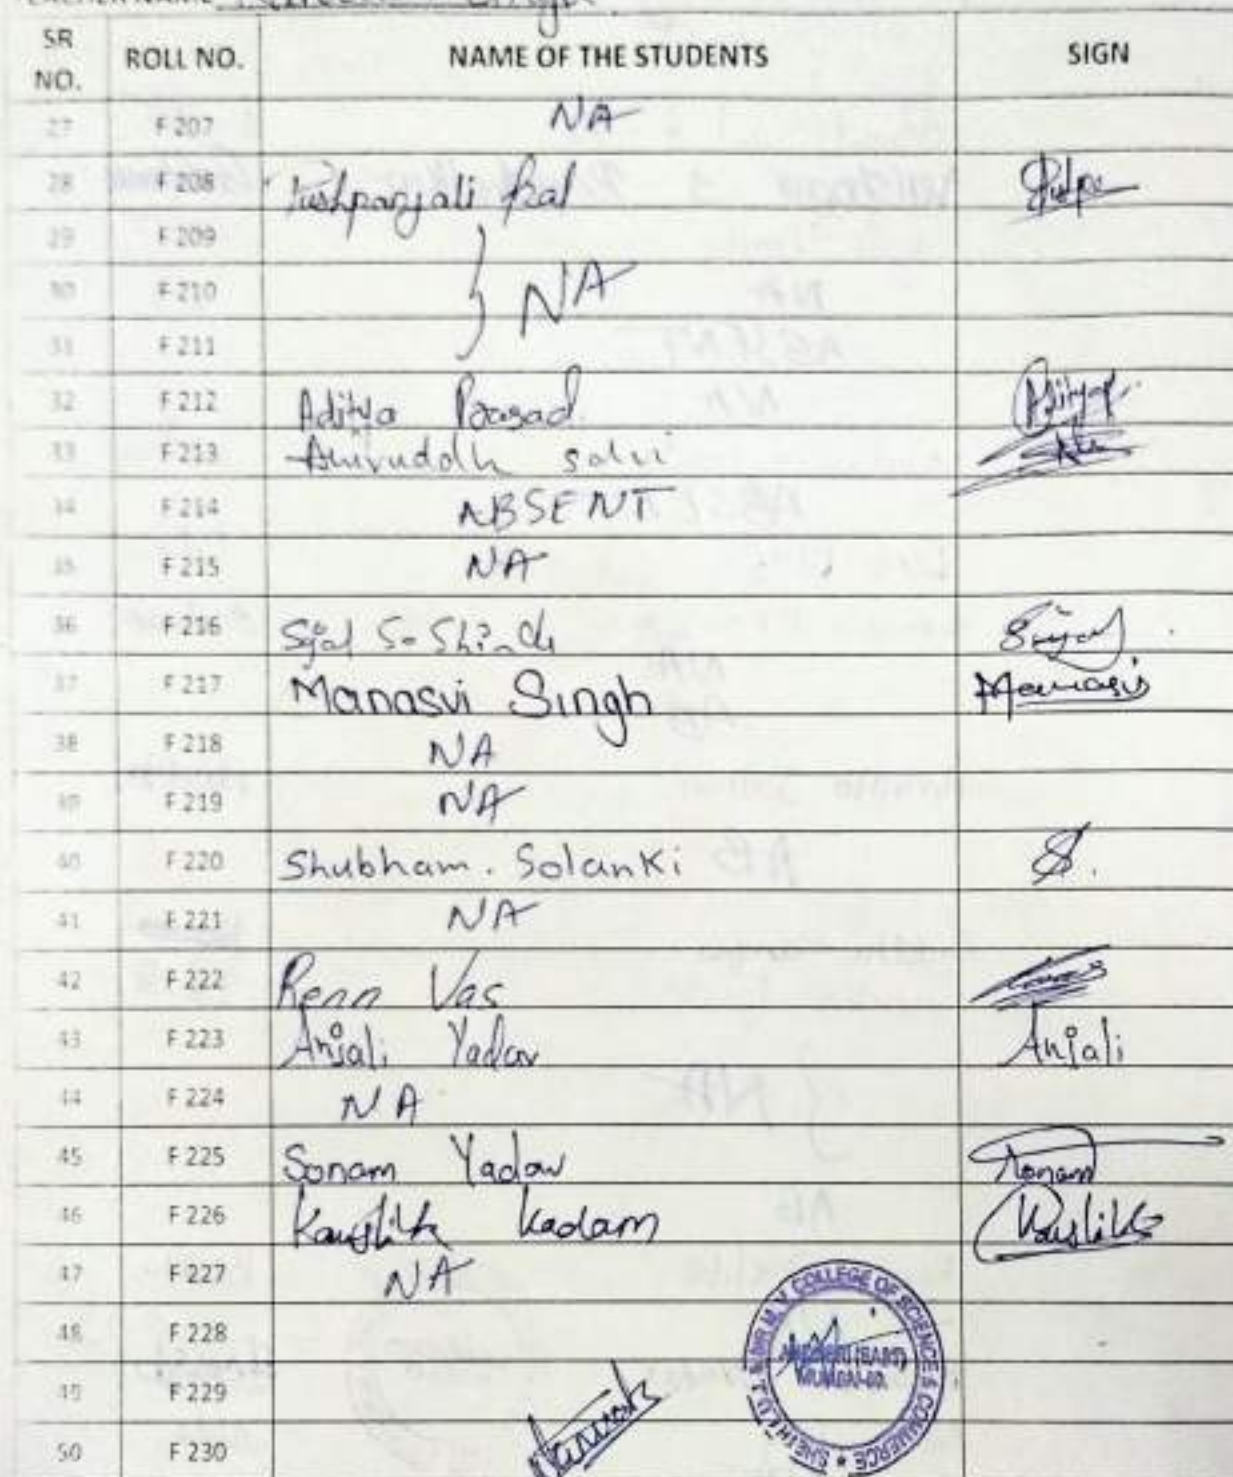 TEACHER NAME Singh
SR NO. ROLL NO. NAME OF THE STUDENTS SIGN
27 F 207 NA
28 F 208 Pushpanjali Pal Pushpa
29 F 209
30 F 210 } NA
31 F 211
32 F 212 Aditya Prasad Aditya
33 F 213 Aniruddh Salvi
34 F 214 ABSENT
35 F 215 NA
36 F 216 S. Shinde
37 F 217 Manasvi Singh Manasvi
38 F 218 NA
39 F 219 NA
40 F 220 Shubham. Solanki S.
41 F 221 NA
42 F 222 Vas
43 F 223 Anjali Yadav Anjali
44 F 224 NA
45 F 225 Sonam Yadav Sonam
46 F 226 Kaushik Kadam Kaushik
47 F 227 NA
48 F 228
49 F 229
50 F 230
M.V. COLLEGE OF SCIENCE & COMMERCE
ANDHERI (EAST)